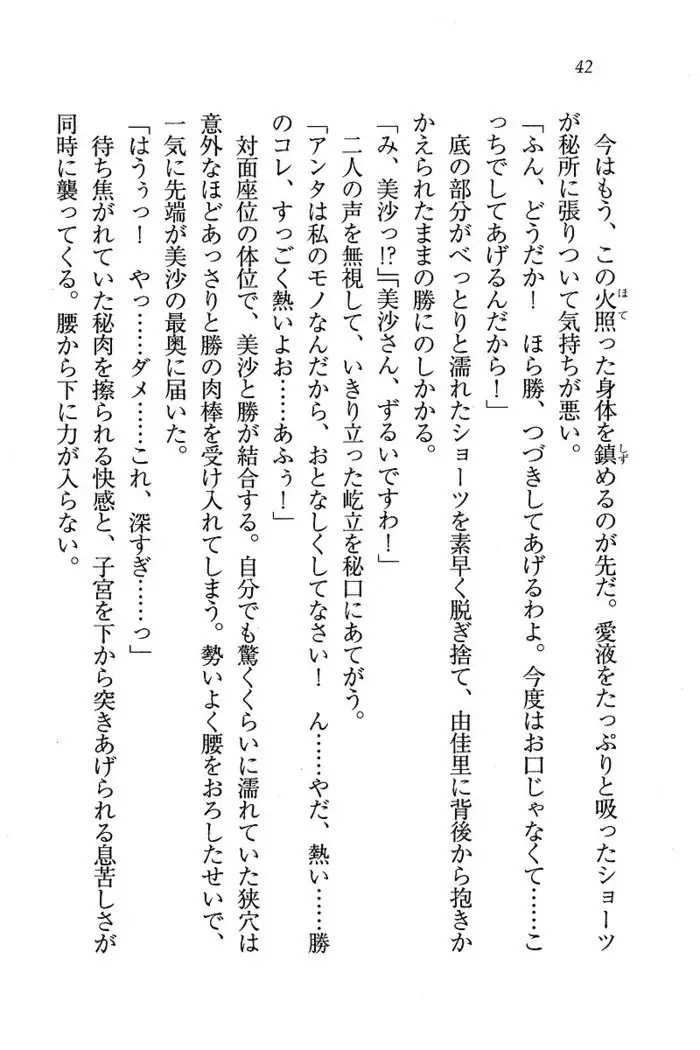 42
今はもう、この火照った身体を鎮めるのが先だ。愛液をたっぷりと吸ったショーツ
が秘所に張りついて気持ちが悪い。
「ふん、どうだか！　ほら勝、つづきしてあげるわよ。今度はお口じゃなくて……こ
っちでしてあげるんだから！」
底の部分がべっとりと濡れたショーツを素早く脱ぎ捨て、由佳里に背後から抱きか
かえられたままの勝にのしかかる。
「み、美沙っ!?」『美沙さん、ずるいですわ！」
二人の声を無視して、いきり立った屹立を秘口にあてがう。
「アンタは私のモノなんだから、おとなしくしてなさい！　ん……やだ、熱い……勝
のコレ、すっごく熱いよお……あふぅ！」
対面座位の体位で、美沙と勝が結合する。自分でも驚くくらいに濡れていた狭穴は
意外なほどあっさりと勝の肉棒を受け入れてしまう。勢いよく腰をおろしたせいで、
一気に先端が美沙の最奥に届いた。
「はうぅっ！　やっ……ダメ……これ、深すぎ……っ」
待ち焦がれていた秘肉を擦られる快感と、子宮を下から突きあげられる息苦しさが
同時に襲ってくる。腰から下に力が入らない。